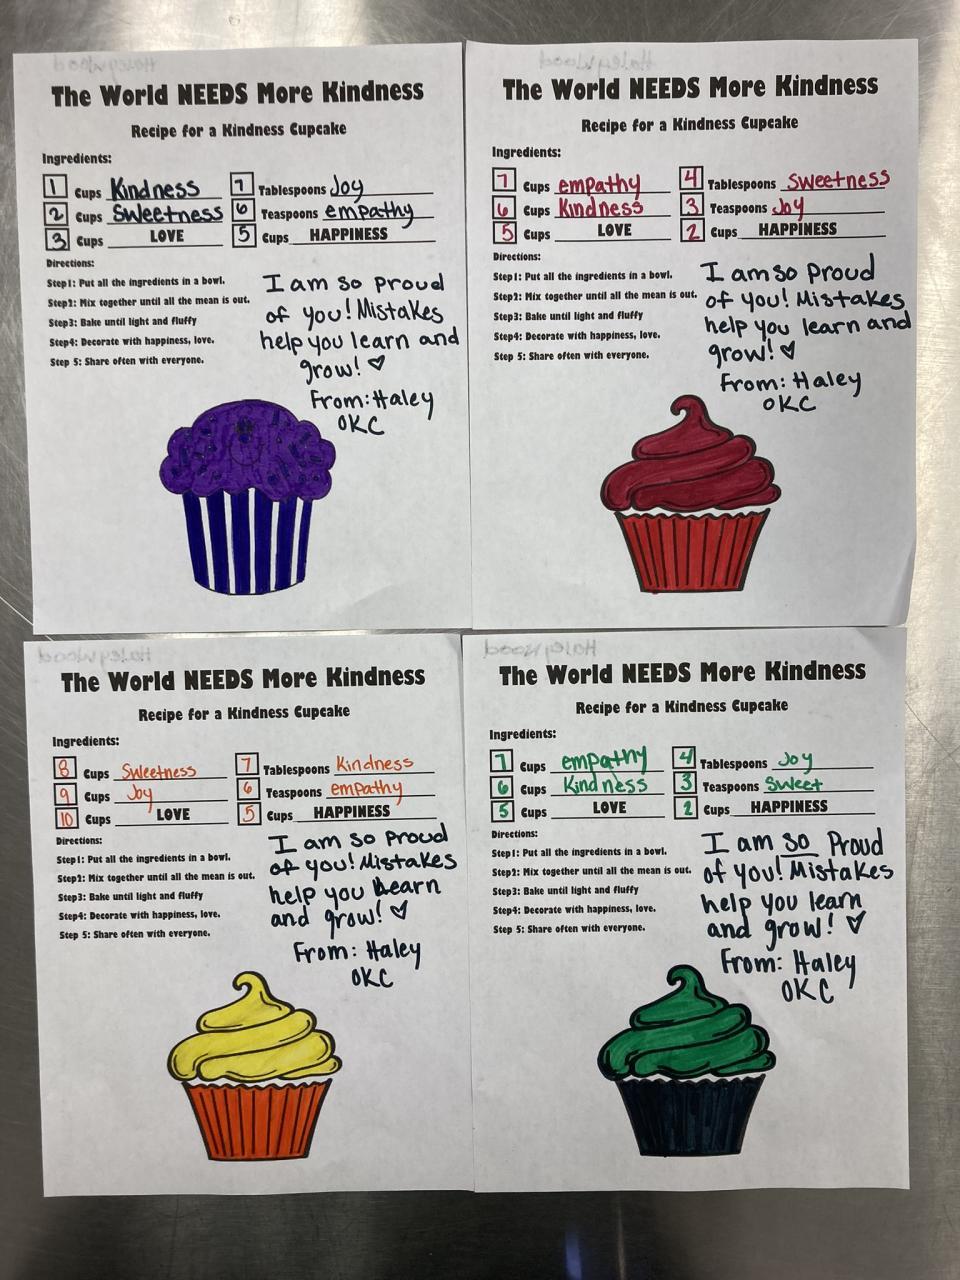 The World NEEDS More Kindness
Recipe for a Kindness Cupcake
Ingredients:
1 Cups Kindness 7 Tablespoons Joy
2 Cups Sweetness 6 Teaspoons empathy
3 Cups LOVE 5 Cups HAPPINESS
Directions:
Step1: Put all the ingredients in a bowl.
Step2: Mix together until all the mean is out.
Step3: Bake until light and fluffy
Step4: Decorate with happiness, love.
Step 5: Share often with everyone.
I am so proud
of you! Mistakes
help you learn and
grow! ♡
From: Haley
OKC
The World NEEDS More Kindness
Recipe for a Kindness Cupcake
Ingredients:
7 Cups empathy 4 Tablespoons Sweetness
6 Cups Kindness 3 Teaspoons Joy
5 Cups LOVE 2 Cups HAPPINESS
Directions:
Step1: Put all the ingredients in a bowl.
Step2: Mix together until all the mean is out.
Step3: Bake until light and fluffy
Step4: Decorate with happiness, love.
Step 5: Share often with everyone.
I am so proud
of you! Mistakes
help you learn and
grow! ♡
From: Haley
OKC
Haley Wood
The World NEEDS More Kindness
Recipe for a Kindness Cupcake
Ingredients:
8 Cups Sweetness 7 Tablespoons Kindness
9 Cups Joy 6 Teaspoons empathy
10 Cups LOVE 5 Cups HAPPINESS
Directions:
Step1: Put all the ingredients in a bowl.
Step2: Mix together until all the mean is out.
Step3: Bake until light and fluffy
Step4: Decorate with happiness, love.
Step 5: Share often with everyone.
I am so proud
of you! Mistakes
help you learn
and grow! ♡
From: Haley
OKC
Haley Wood
The World NEEDS More Kindness
Recipe for a Kindness Cupcake
Ingredients:
7 Cups empathy 4 Tablespoons Joy
6 Cups Kindness 3 Teaspoons Sweet
5 Cups LOVE 2 Cups HAPPINESS
Directions:
Step1: Put all the ingredients in a bowl.
Step2: Mix together until all the mean is out.
Step3: Bake until light and fluffy
Step4: Decorate with happiness, love.
Step 5: Share often with everyone.
I am so Proud
of you! Mistakes
help you learn
and grow! ♡
From: Haley
OKC